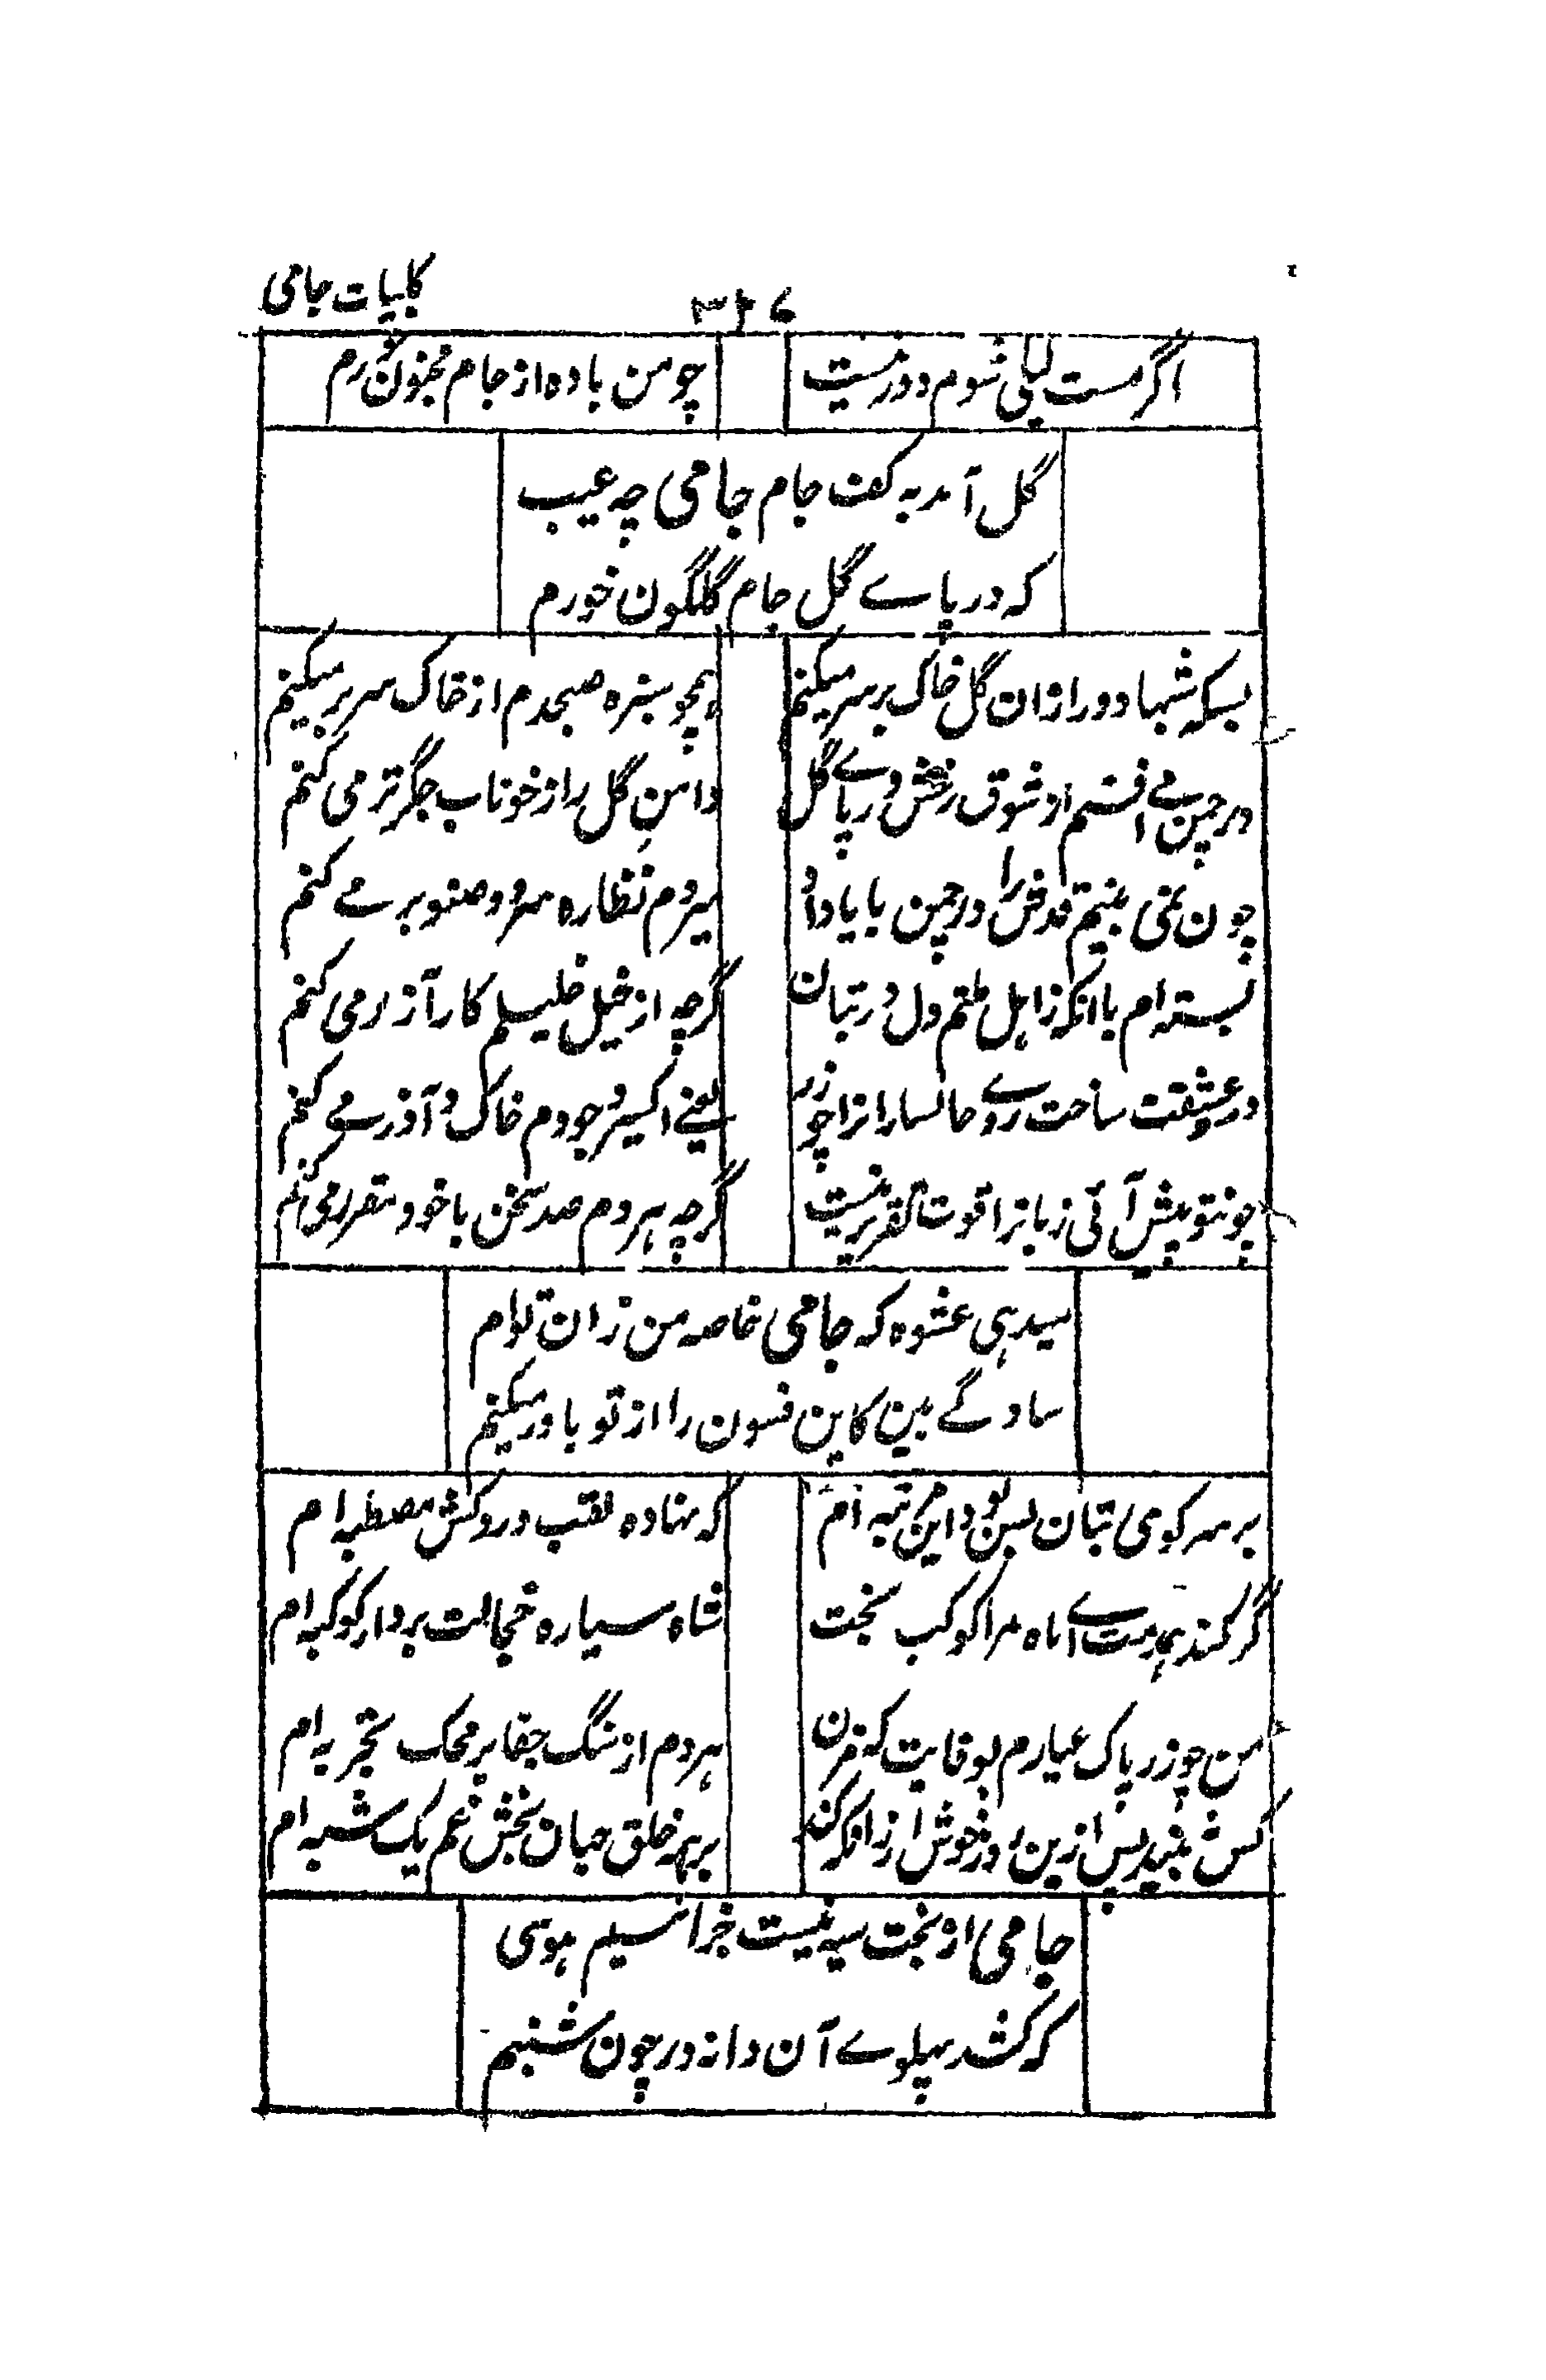 کلیات جامی
۳۴۷
اگر مست لیلی شوم دور نیست چو من باده از جام مجنون خورم
گل آمد به کف جام جامی چه عیب
که در پاے گل جام گلگون خورم
بسکه شبها دور ازان گل خاک بر سر میکنم همچو سبزه صبحدم از خاک سر بر میکنم
در چمن مے افتم از شوق رخش در پاے گل دامنِ گل را ز خوناب جگر تر می کنم
چون نمی بینم قدش را در چمن با یاد او میروم نظاره سرو و صنوبر مے کنم
بسته ام با آنکه ز اهل ملتم دل در بتان گرچه از خیل خلیلم کار آزر می کنم
در عشقت ساخت روے خاکساران را چو زر یعنے اکسیر وجودم خاک و آذر مے کنم
چونتو پیش آئی زبانرا قوت تقریر نیست گرچه هر دم صد سخن با خود مقرر می کنم
میدهی عشوه که جامی خاصه من زان توام
سادگے بین کاین فسون را از تو باور میکنم
بر سر کوی بتان بس بود این مرتبه ام که نهاده لقب دردکش مصطبه ام
گر کند همرهے آن ماه مرا کوکب بخت شاه سیاره خجالت برد از کوکبه ام
من چو زر پاک عیارم بوفایت که مزن هر دم از سنگ جفا بر محک تجربه ام
کس نبیند پس ازین روز خوش ار زانکه کنند بر همه خلق جهان بخش غم یک شبه ام
جامی از بخت سیه نیست جز انسیم هوسی
که کشد پهلوے آن دانه در چون شبه ام